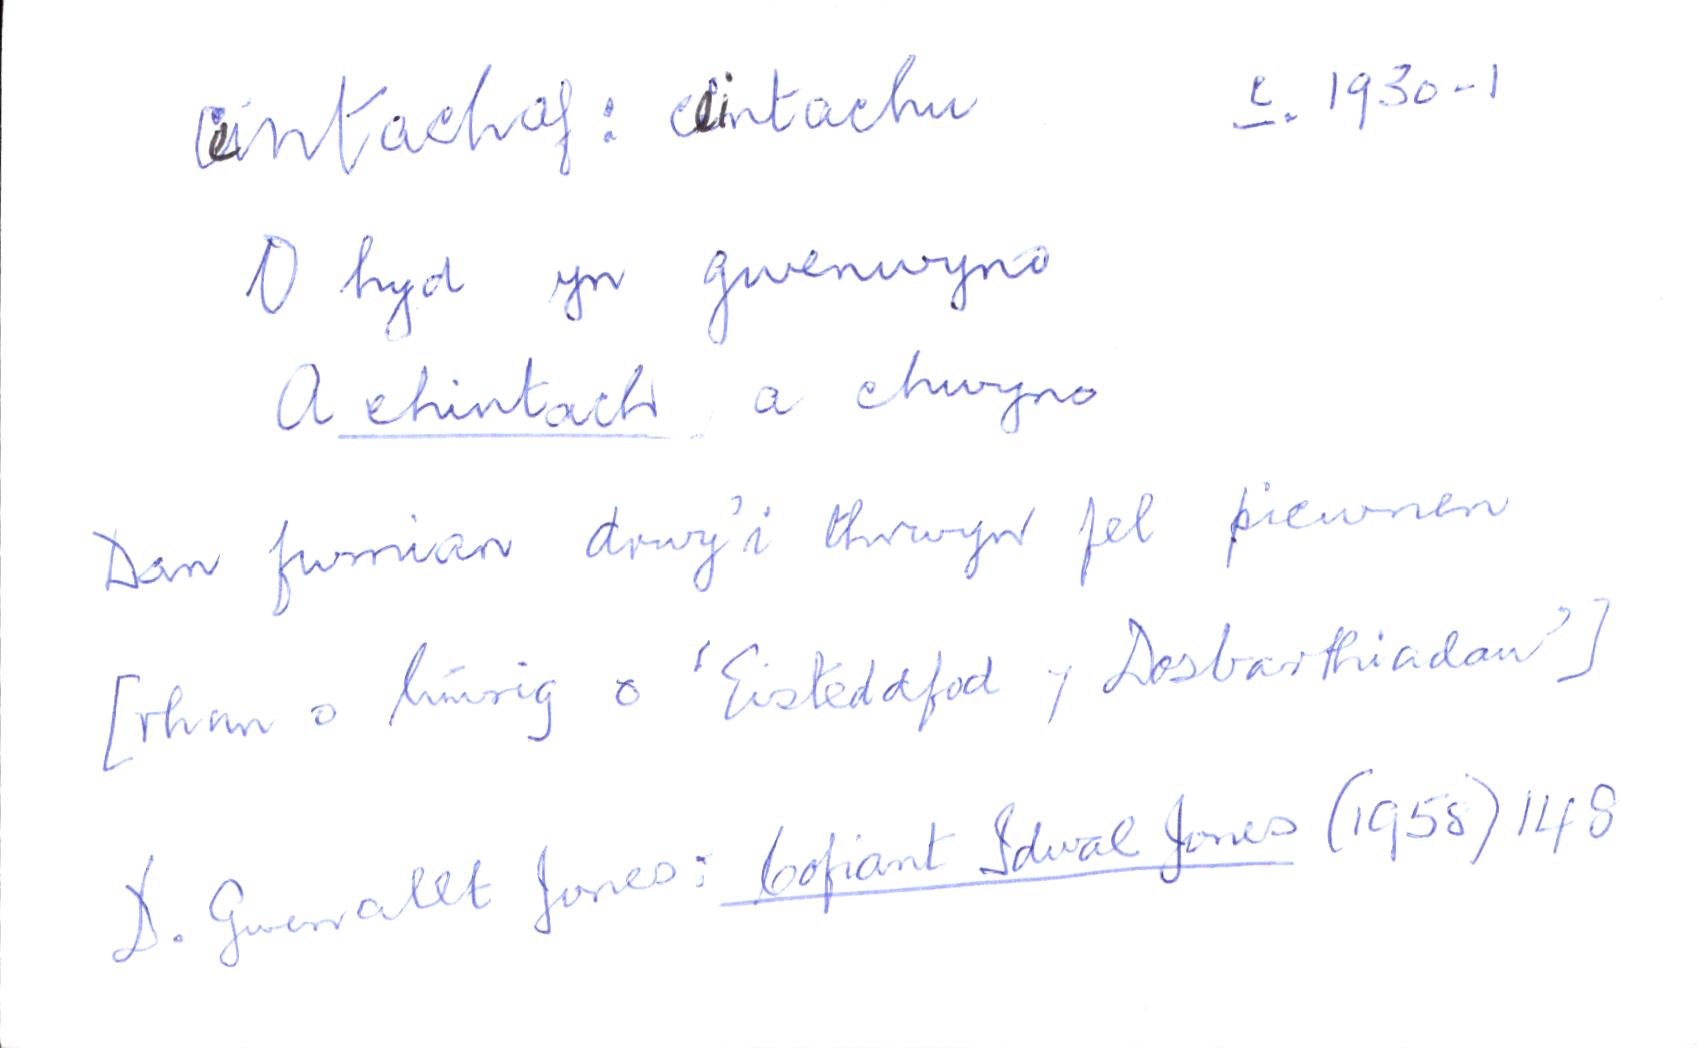 cintachaf: cintachu c. 1930-1
O hyd yn gwenwyno
A chintach a chwyno
Dan fwmian drwy'i thrwyn fel piewnen
[rhan o limrig o 'Eisteddfod y Dosbarthiadau']
D. Gwenallt Jones: Cofiant Idwal Jones (1958) 148